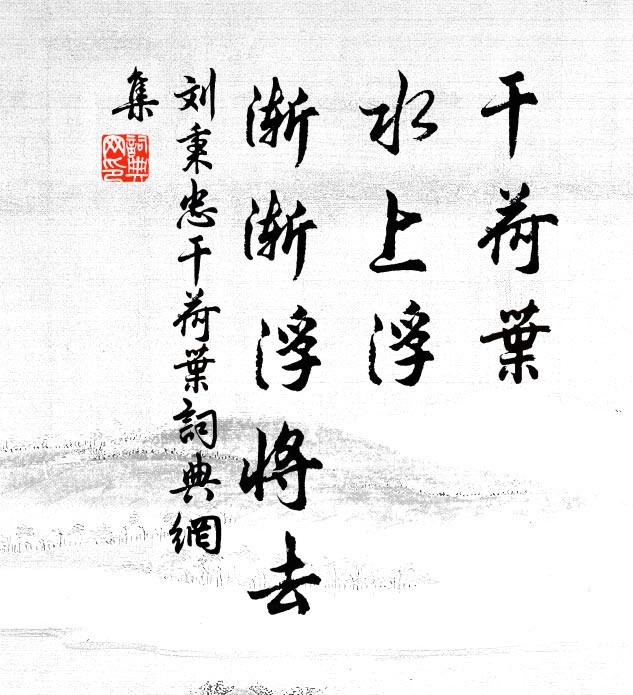 干荷葉
水上浮
渐渐浮將去
刘秉忠干荷葉詞典網
集
詞典
网印